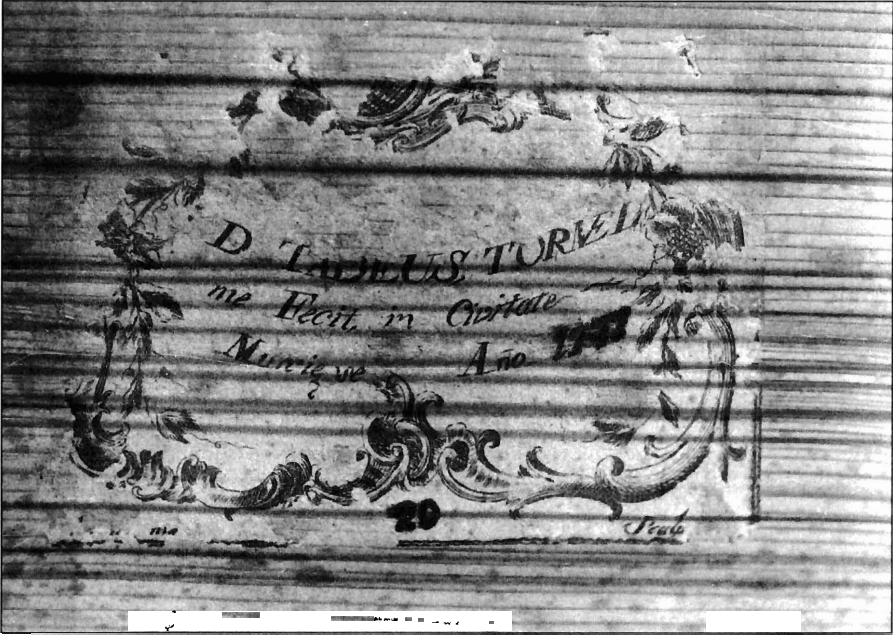 D TADEUS, TORNEL
me Fecit, in Civitate
Murcie Año
20